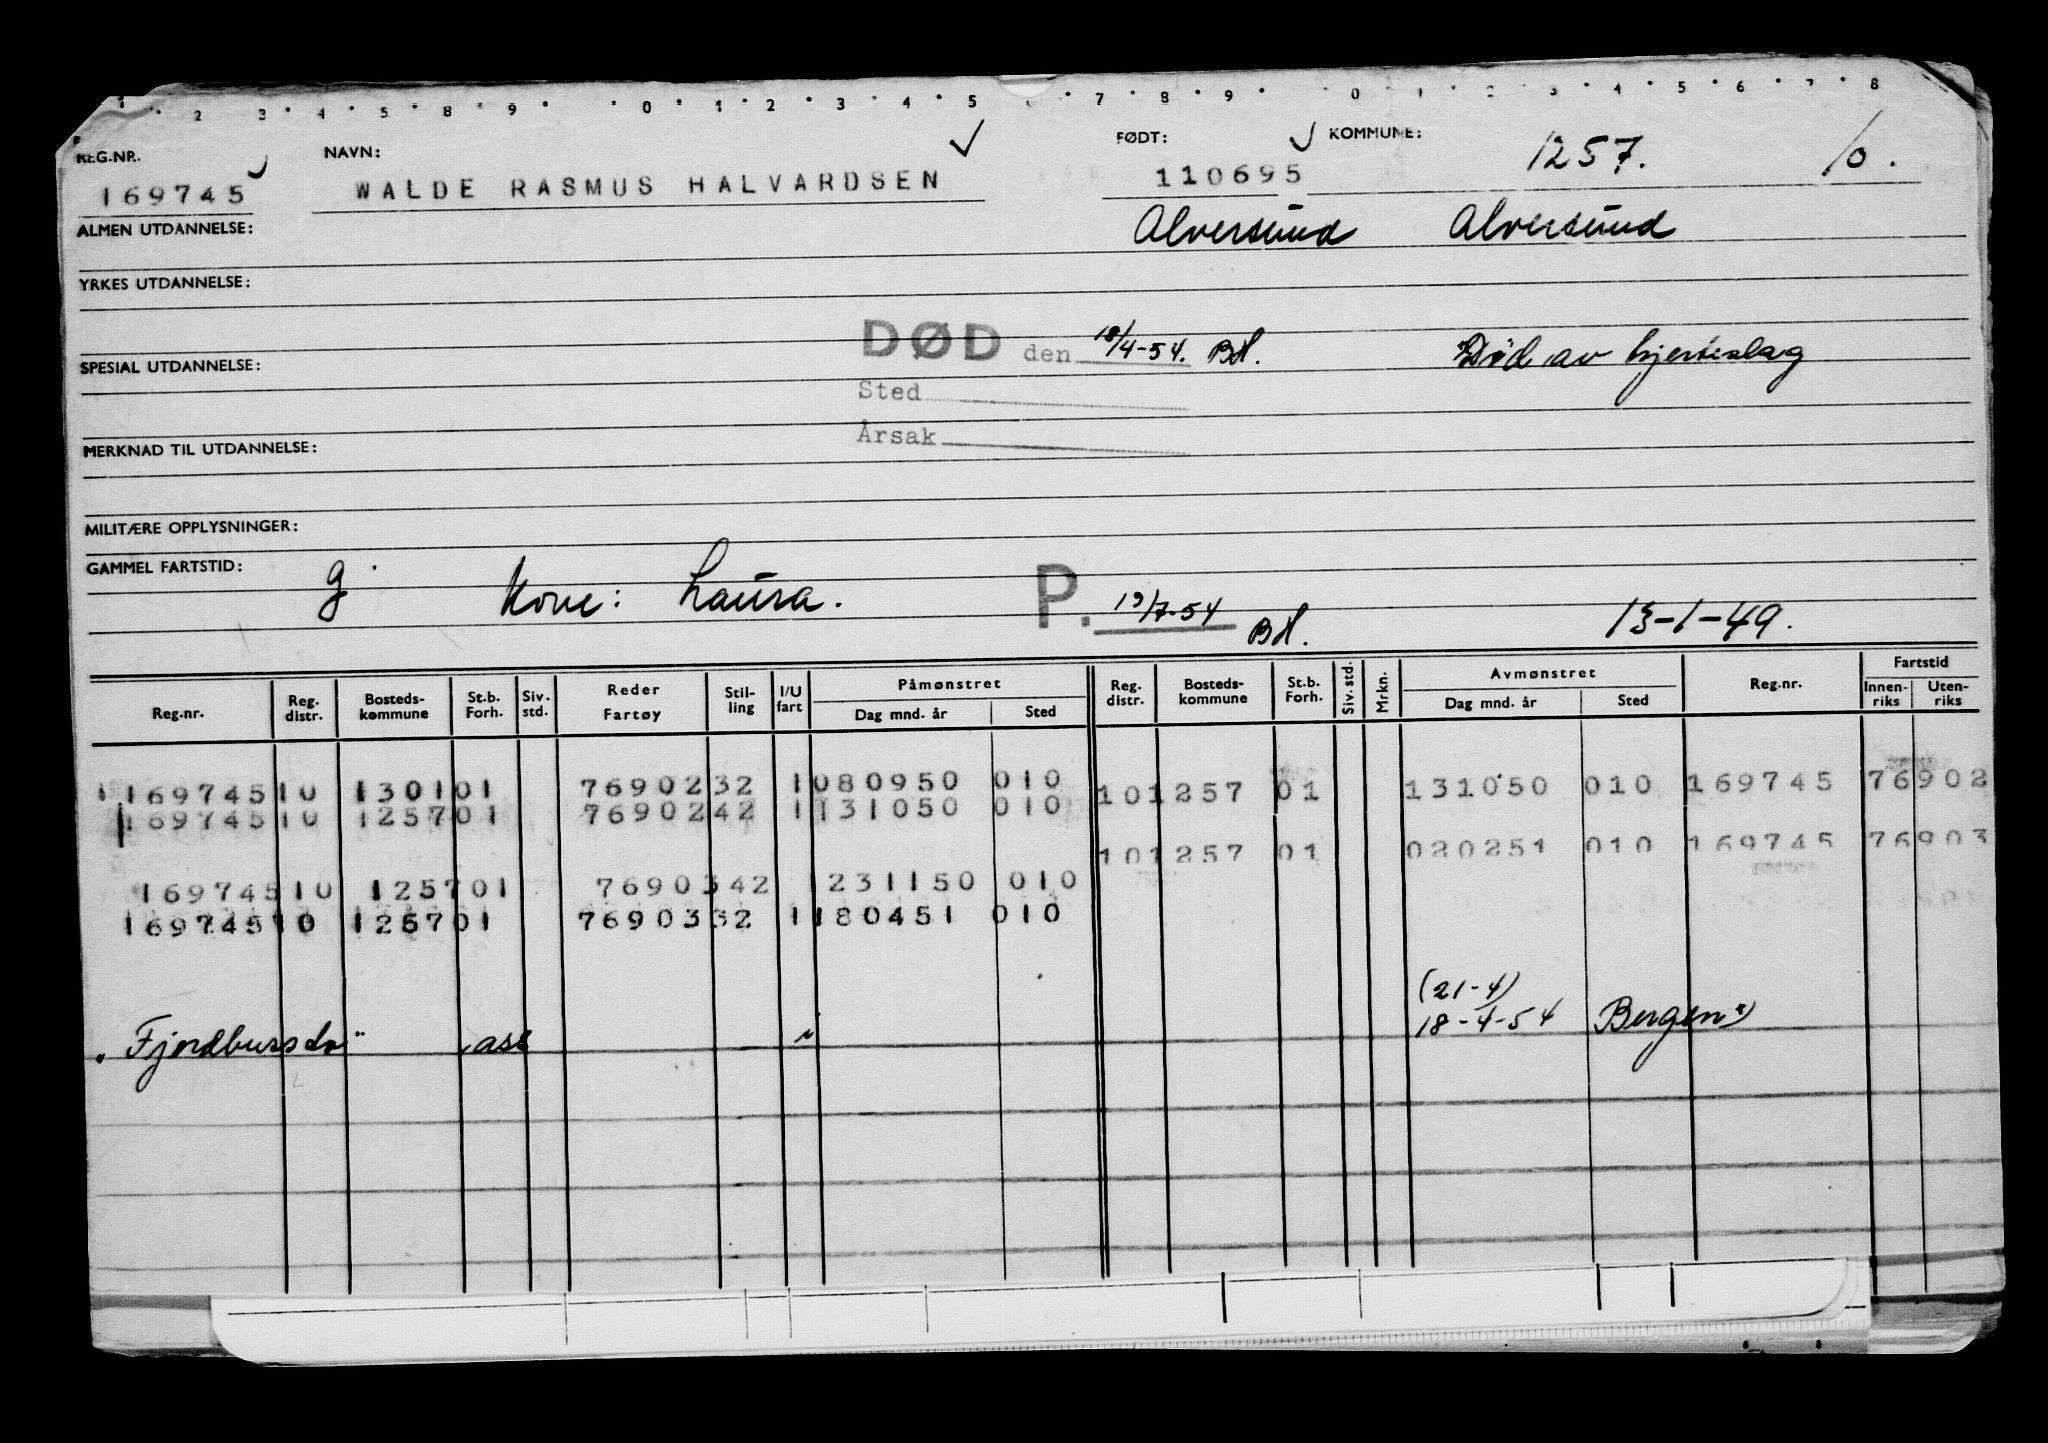 1 2 3 4 5 8 9 0 1 2 3 4 5 7 8 9 0 1 2 3 4 5 6 7 8
REG.NR. NAVN: FØDT: KOMMUNE: 1257. 10.
169745 WALDE RASMUS HALVARDSEN 110695
ALMEN UTDANNELSE: Alversund Alversund
YRKES UTDANNELSE:
DØD den 18/4-54. BH. Død av hjerteslag
SPESIAL UTDANNELSE:
Sted
Årsak
MERKNAD TIL UTDANNELSE:
MILITÆRE OPPLYSNINGER:
GAMMEL FARTSTID: g Kone: Laura. P. 19/7-54 BH. 13-1-49.
Reg.nr. Reg. distr. Bosteds-kommune St.b. Forh. Siv. std. Reder Fartøy Stil-ling I/U fart Påmønstret Dag mnd. år Sted Reg. distr. Bosteds-kommune St.b. Forh. Siv. std. Mrkn. Avmønstret Dag mnd. år Sted Reg.nr. Fartstid Innen-riks Uten-riks
169745 10 1301 01 76902 32 1 080950 010 10 1257 01 131050 010 169745 76902
169745 10 1257 01 76902 42 1 131050 010
10 1257 01 020251 010 169745 76903
169745 10 1257 01 76903 42 1 231150 010
169745 10 1257 01 76903 32 1 180451 010
(21-4)
18-4-54 Bergen